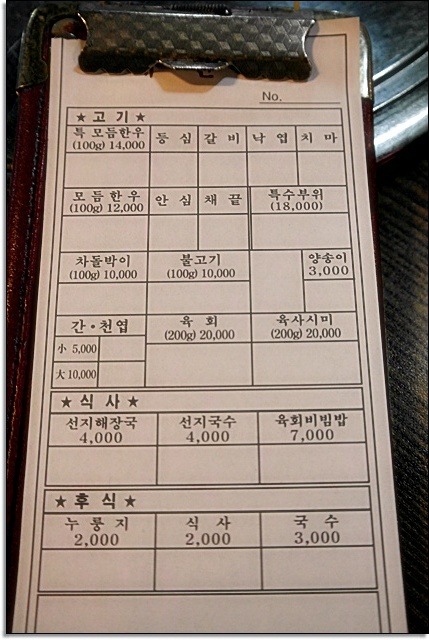 No.
★ 고 기 ★
특 모듬한우 등 심 갈 비 낙 엽 치 마
(100g) 14,000
모 듬 한 우 안 심 채 끝 특수부위
(100g) 12,000 (18,000)
차돌박이 불고기 양송이
(100g) 10,000 (100g) 10,000 3,000
간·천엽 육 회 육사시미
(200g) 20,000 (200g) 20,000
小 5,000
大 10,000
★ 식 사 ★
선지해장국 선지국수 육회비빔밥
4,000 4,000 7,000
★ 후 식 ★
누 룽 지 식 사 국 수
2,000 2,000 3,000